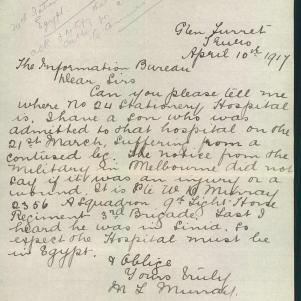 Egypt
Glen Turret
April 10th 1917
The Information Bureau
Dear Sirs
Can you please tell me
where No 24 Stationery Hospital
is. I have a son who was
admitted to that hospital on the
21st March, suffering from a
contused leg. The notice from the
Military in Melbourne did not
say if it was an injury or a
wound. It is Pte W. Murray
2356 A Squadron, 9th Light Horse
Regiment 3rd Brigade, Last I
heard he was in Sinia, so
expect the Hospital must be
in Egypt.
& Oblige
Yours truly
M L Murray